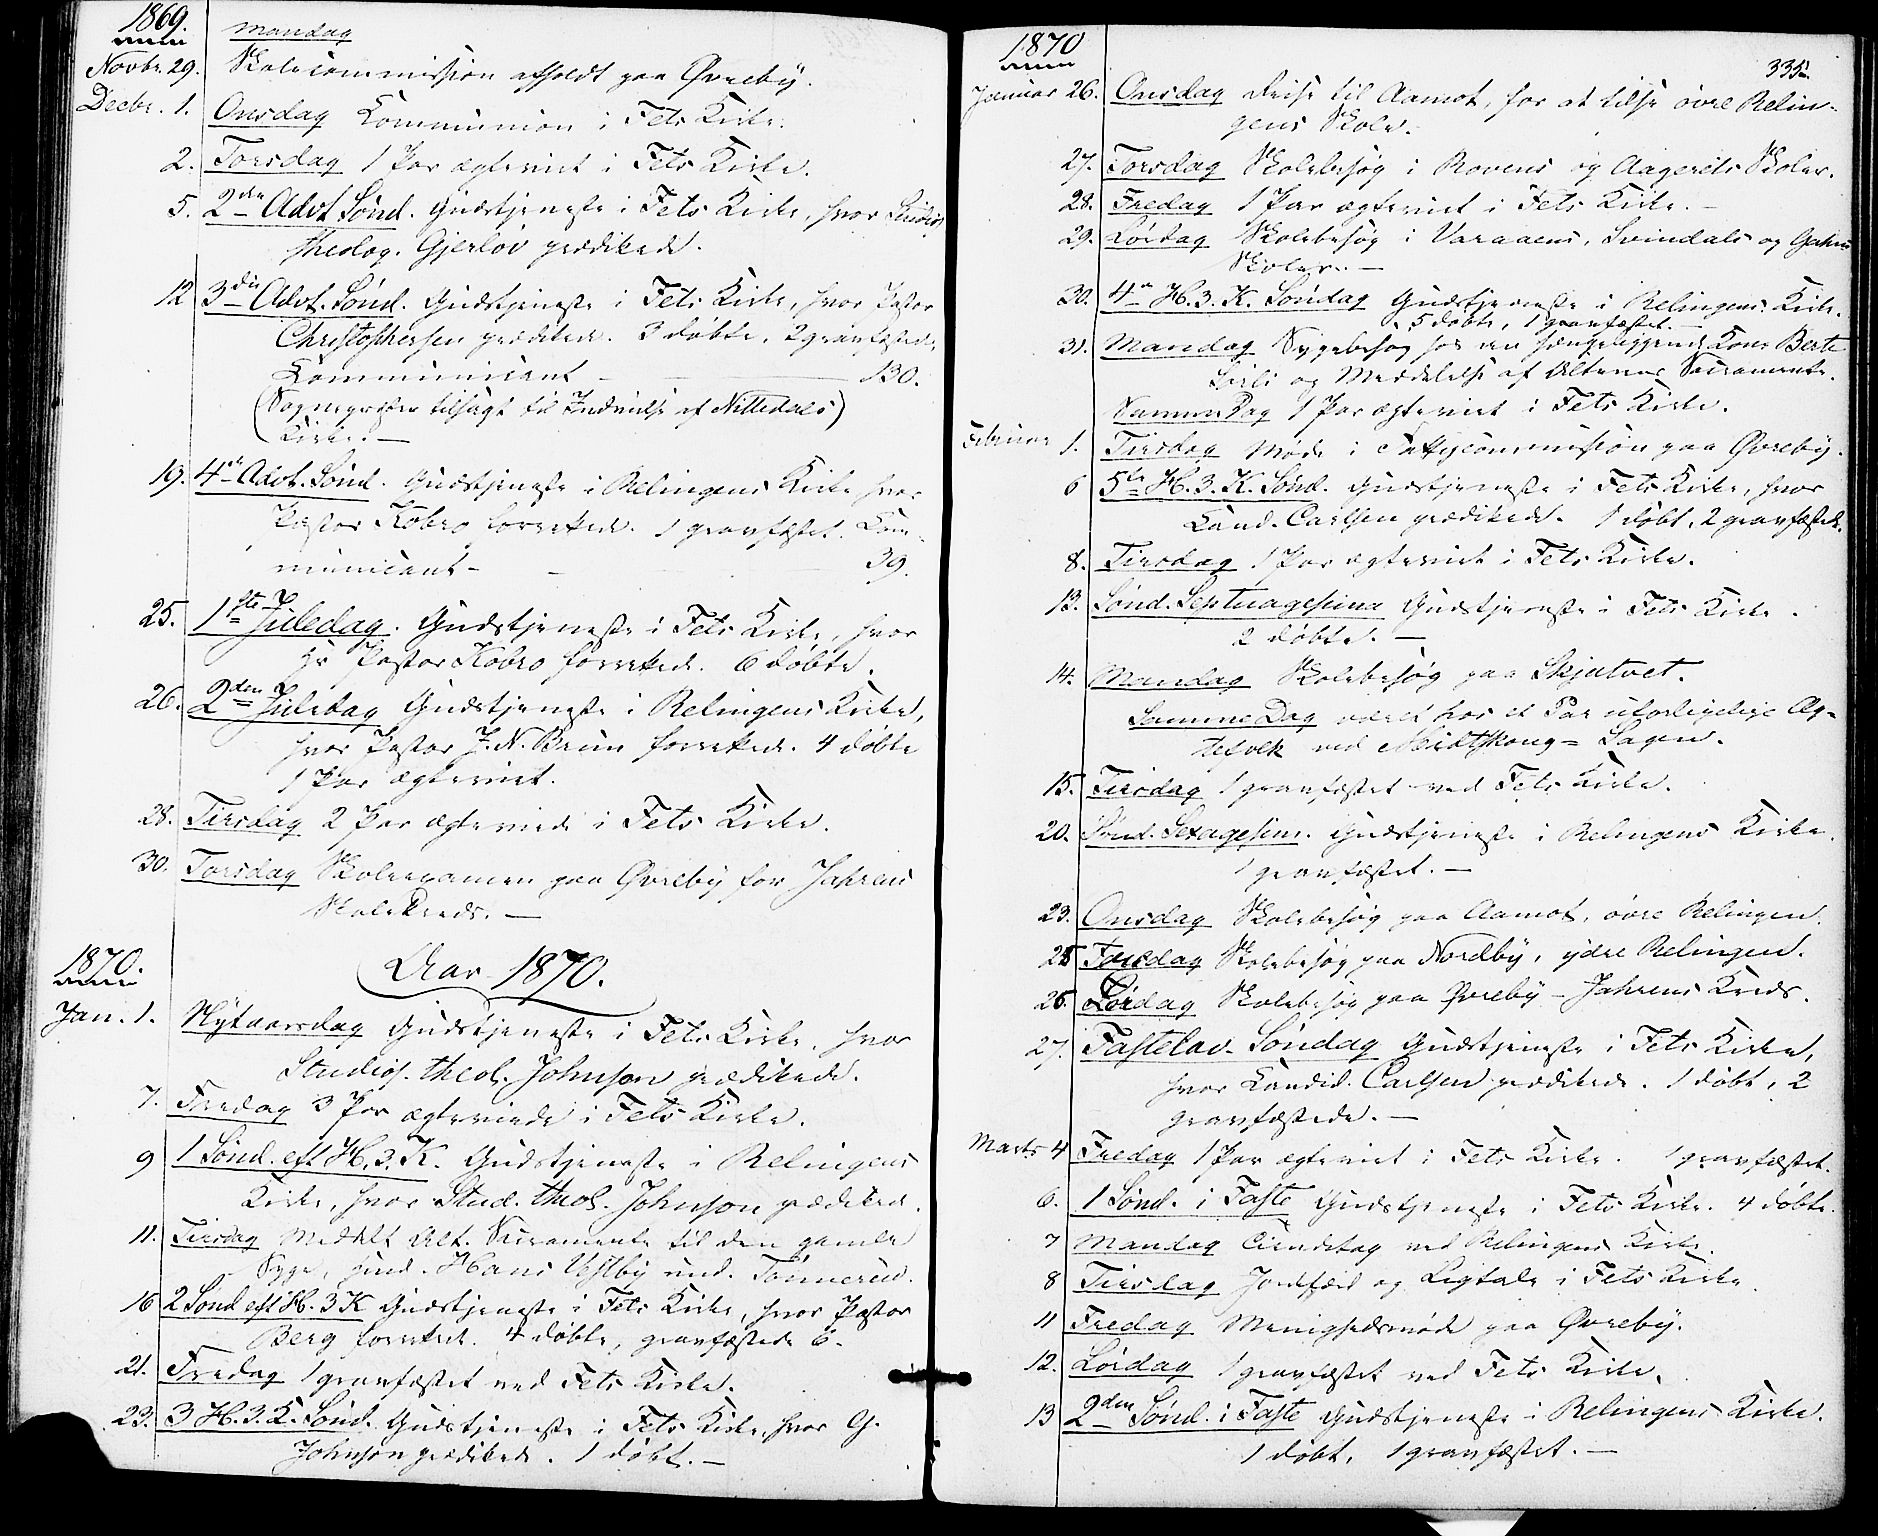 1869.
Mandag
Novbr. 29. Skolecommission afholdt paa Øvreby.
Decbr. 1. Onsdag Communion i Fets Kirke.
2. Torsdag 1 Par ægteviet i Fets Kirke.
5. 2den Advt Sønd. Gudstjeneste i Fets Kirke, hvor Studios
theolog. Gjerløv prædikede.
12 3die Advt. Sønd. Gudstjeneste i Fets Kirke, hvor Pastor
Christophersen prædikede. 3 døbte, 2 gravfæstede,
Communicant - 130.
(Sognepræsten tilsagt til Indvielse af Nittedals)
Kirke. —
19. 4de Advt. Sønd. Gudstjeneste i Relingens Kirke hvor
Pastor Kobro forrettede. 1 gravfæstet. Com-
municant - 39.
25. 1ste Juledag. Gudstjeneste i Fets Kirke, hvor
Hr Pastor Kobro forrettede. 6 døbte.
26. 2den Juledag Gudstjeneste i Relingens Kirke,
hvor Pastor J. N. Brun forrettede. 4 døbte
1 Par ægteviet.
28. Tirsdag 2 Par ægteviede i Fets Kirke.
30. Torsdag Skoleexamen paa Øvreby for Jahrens
Skolekreds. —
1870. Aar 1870.
Jan. 1. Nytaarsdag Gudstjeneste i Fets Kirke, hvor
Studios. theol. Johnson prædikede.
7. Fredag 3 Par ægteviede i Fets Kirke.
9 1 Sønd. eft H. 3. K. Gudstjeneste i Relingens
Kirke, hvor Stud. theol. Johnson prædikede.
11. Tirsdag Meddelt Alt. Sacramente til den gamle
Syge, Hans Vestby und. Tønnerud.
16 2 Sønd eft H. 3 K Gudstjeneste i Fets Kirke, hvor Pastor
Berg forrettede. 4 døbte, gravfæstede 6.
21. Fredag 1 gravfæstet ved Fets Kirke.
23. 3 H. 3. K. Sønd. Gudstjeneste i Fets Kirke, hvor G.
Johnson prædikede. 1 døbt. —
1870
335.
Januar 26. Onsdag Reise til Aamot, for at tilse øvre Relin-
gens Skole.
27. Torsdag Skolebesøg i Rovens og Aageréts Skoler.
28. Fredag 1 Par ægteviet i Fets Kirke. —
29. Lørdag Skolebesøg i Varaaens, Svindals og Gahns
Skoler. —
30. 4de H. 3. K. Søndag Gudstjeneste i Relingens Kirke.
5 døbte, 1 gravfæstet. —
31. Mandag Sygebesøg hos den sengeliggende Kone Berte
og Meddelelse af Alterens Sacramente.
Samme Dag 1 Par ægteviet i Fets Kirke.
Februar 1. Tirsdag Møde i Fattigcommission paa Øvreby.
6 5te H. 3. K. Sønd. Gudstjeneste i Fets Kirke, hvor
Cand. Carlsen prædikede. 1 døbt, 2 gravfæstede.
8. Tirsdag 1 Par ægteviet i Fets Kirke.
13. Sønd. Septuagesima Gudstjeneste i Fets Kirke.
2 døbte. —
14. Mandag Skolebesøg paa Skjatvet.
Samme Dag været hos et Par uforligelige Æg-
tefolk ved Midtskoug- Sagen.
15. Tirsdag 1 gravfæstet ved Fets Kirke.
20. Sønd. Sexagesim. Gudstjeneste i Relingens Kirke.
1 gravfæstet. —
23. Onsdag Skolebesøg paa Aamot, øvre Relingen.
25 Fredag Skolebesøg paa Nordby, ydre Relingen.
26. Lørdag Skolebesøg paa Øvreby - Jahrens Kreds.
27. Fastelav. Søndag Gudstjeneste i Fets Kirke,
hvor Candid. Carlsen prædikede. 1 døbt, 2
gravfæstede. —
Marts 4 Fredag 1 Par ægteviet i Fets Kirke. 1 gravfæstet.
6. 1 Sønd. i Faste Gudstjeneste i Fets Kirke. 4 døbte.
7 Mandag ved Relingens Kirke.
8 Tirsdag Jordfæst og Ligtale i Fets Kirke
11 Fredag Menighedsmøde paa Øvreby.
12. Lørdag 1 gravfæstet ved Fets Kirke.
13 2den Sønd. i Faste Gudstjeneste i Relingens Kirke.
1 døbt, 1 gravfæstet. —